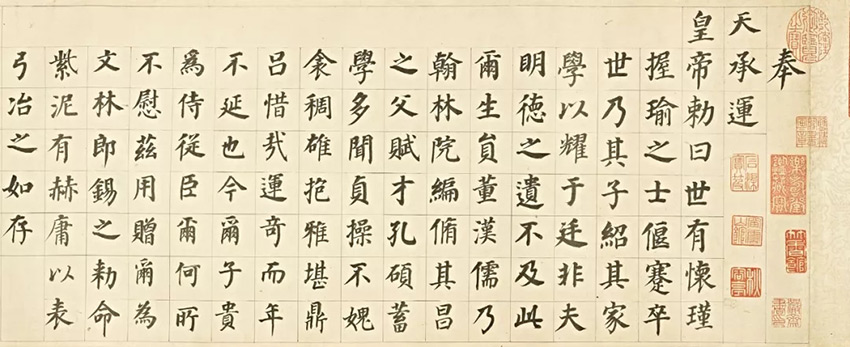 奉
天承運
皇帝勅曰世有懷瑾
握瑜之士偃蹇卒
世乃其子紹其家
學以耀于廷非夫
明德之遺不及此
爾生員董漢儒乃
翰林院編脩其昌
之父賦才孔碩蓄
學多聞貞操不媿
衾稠雄抱雅堪鼎
呂惜哉運奇而年
不延也今爾子貴
為侍從臣爾何所
不慰茲用贈爾為
文林郎錫之勅命
紫泥有赫庸以表
弓冶之如存